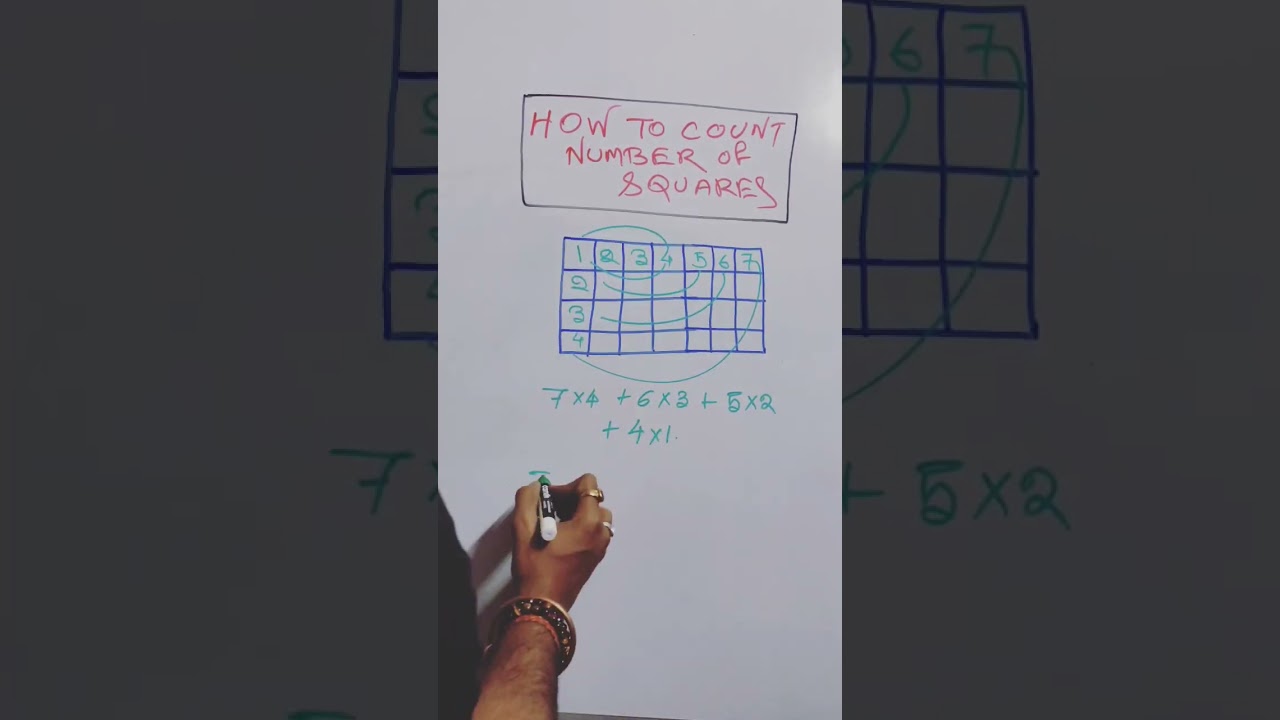 HOW TO COUNT
NUMBER OF
SQUARES
1 2 3 4 5 6 7
2
3
4
7×4 + 6×3 + 5×2
+ 4×1.